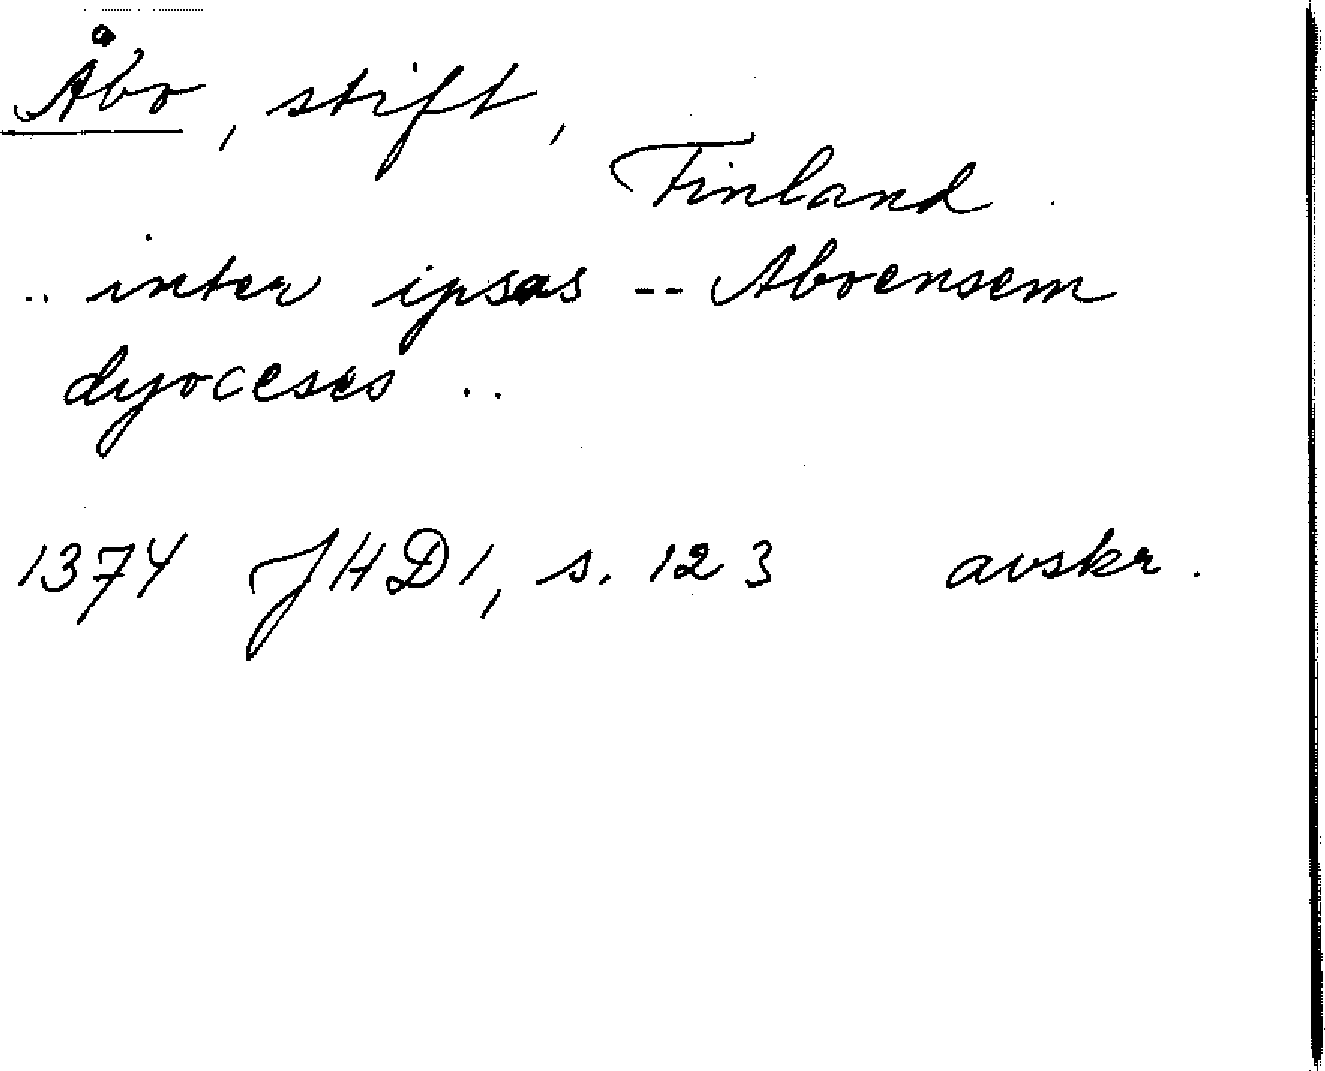 Åbo, stift,
Finland
.. inter ipsas -- Aboensem
dyoceses ..
1374 JHD 1, s. 123 avskr.